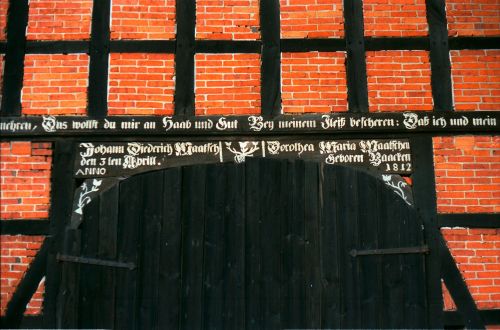 mehren, Das wollst du mir an Haab und Gut Bey meinem Fleiß bescheren: Daß ich und mein
Johann Diederich Maatsch Dorothea Maria Maatschen
den 3 ten Aprill. Geboren Baacken
ANNO 1812